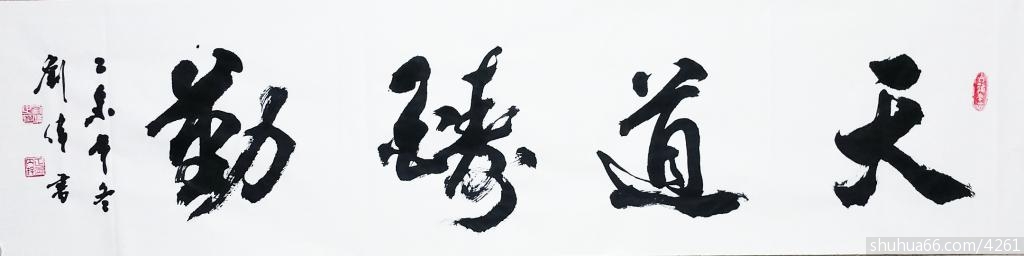 天道酬勤
乙未年冬
劉偉書
shuhua66.com/4261